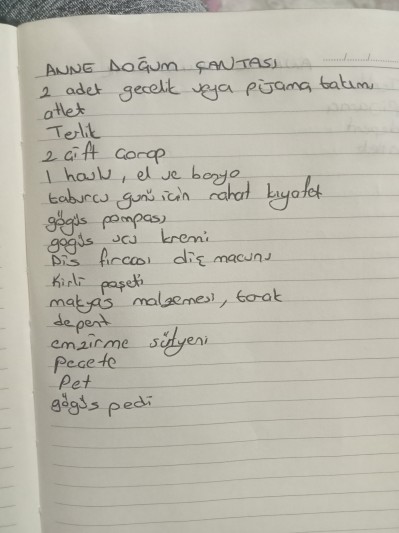 ANNE DOĞUM ÇANTASI
2 adet gecelik veya pijama takımı
atlet
Terlik
2 çift çorap
1 havlu, el ve banyo
taburcu günü için rahat kıyafet
göğüs pompası
göğüs ucu kremi
Diş fırçası diş macunu
Kirli poşeti
makyaj malzemesi, tarak
depent
emzirme sütyeni
Peçete
Pet
göğüs pedi